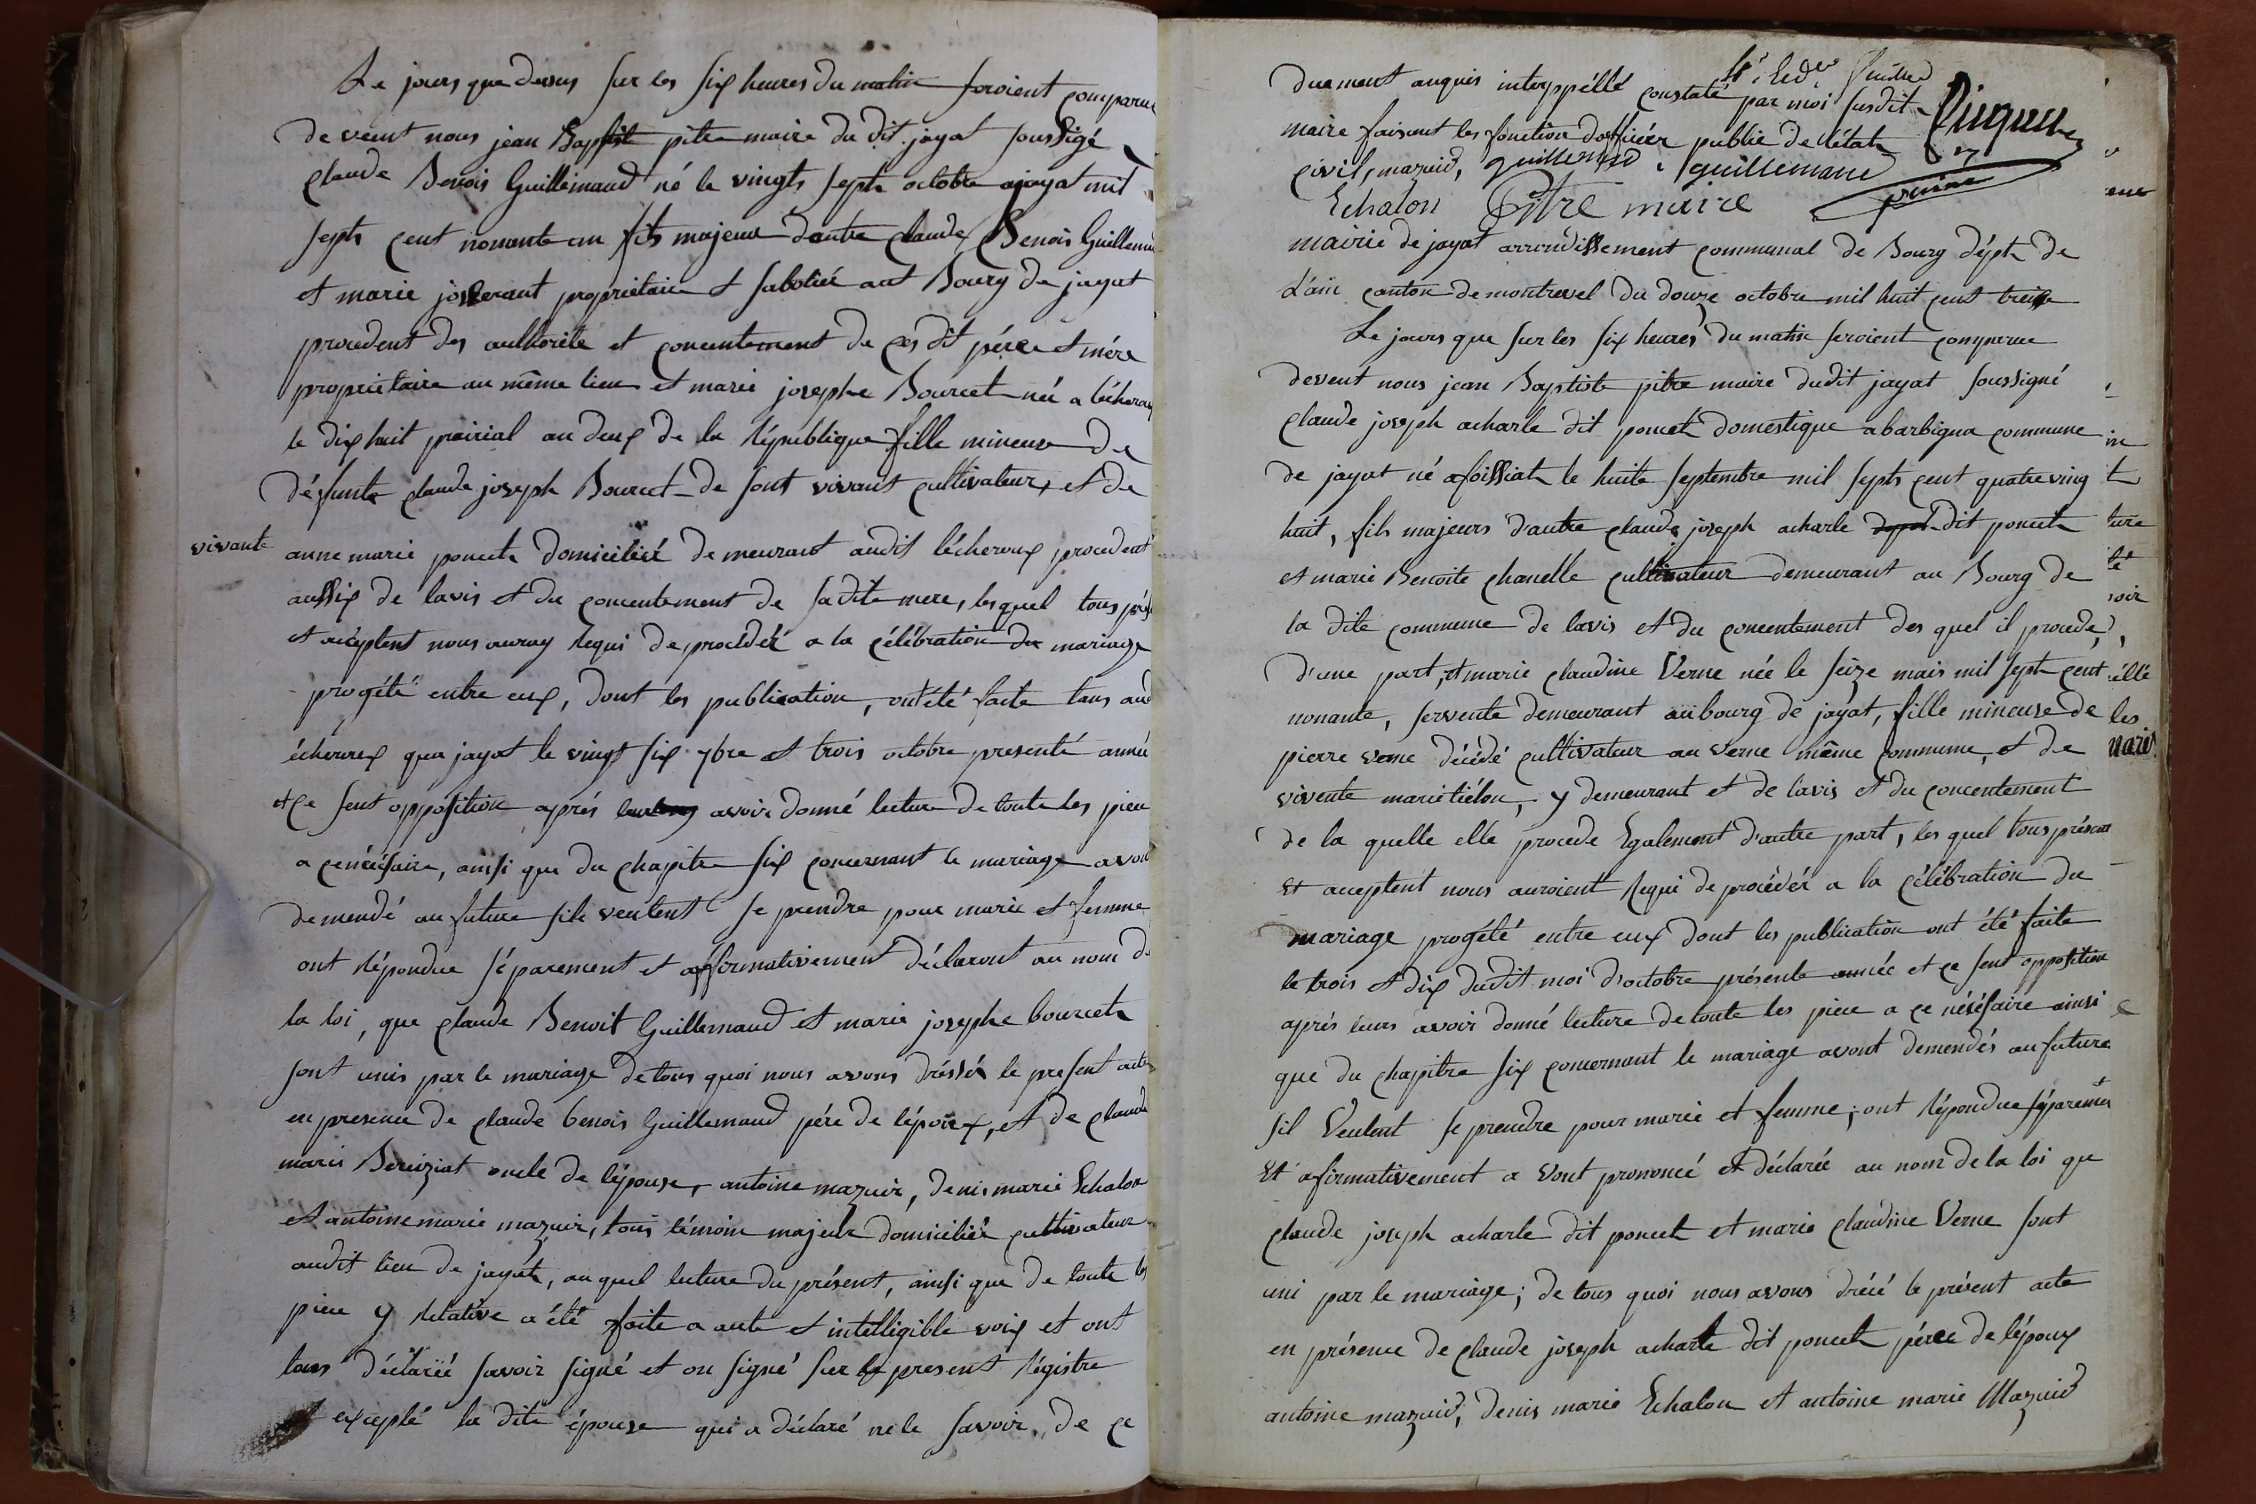 Le jours que desus sur les six heures du matin seroient comparue
devent nous jean Baptist pitre maire du dit jayat soussigé
claude Benois Guillemaud né le vingts septe octobre a jayat mil
septs cent nonante un fils majeur dautre claude Benois Guillemaud
et marie josserant propriétaire et sabotiée aut Bourg de jayat
procedent des authorite et concentement de ces dit pére et mére
propriétaire au même lieu et marie josephe Bourcet née a lécherou
le dix huit prairial an deux de la République fille mineure de
défunte claude joseph Bourcet de sont vivant cultivateur, et de
vivante anne marie poncete domiciliée demeurant audit lécheroux procedent
aussix de lavis et du concentement de sadite mere, les quel tous prés
et acéptent nous auroy Requi de procédér a la célébration du mariage
progété entre eux, dont les publication, ont été faite tans aud
écheroux qua jayat le vingt six 7bre et trois octobre presente année
et ce sent opposition aprés avoir donné lecture de toute les piece
a cenécésaire, ainsi que du chapitre six concernant le mariage avon
demendé au future sils veulent se prendre pour marie et femme
ont Répondue séparement et affirmativement déclaront au nom de
la loi, que claude Benoit Guillemaud et marie josephe bourcet
sont unis par le mariage de tous quoi nous avons dréssés le present acte
en presence de claude benois Guillemaud pére de lépoux, et de claude
marie Béréziat oncle de lépouse, antoine mazuir, denis marie Echalon
et antoine marie mazuir, tous témoin majeur domiciliés cultivateur
audit lieu de jayat, au quel lecture du présent, ainsi que de toute les
piece y Relative a été faite a aute et intelligible voix et ont
tous déclarée savoir signé et on signé sur le present Régistre
excepté la dite épouse qui a déclaré ne le savoir, de ce
duement anquis interppéllé constaté par moi susdit
maire faisant les fonction dofficiér publie de létat
civil, mazuid, guillemaud guillemaud
Echalon Pitre maire
mairie de jayat arrondissement communal de Bourg dépt de
d'ain canton de montrevel du douze octobre mil huit cent treize
Le jours que sur les six heures du matin seroient comparue
devent nous jean Baptiste pitre maire dudit jayat soussigné
claude joseph acharle dit poncet domestique abarbigna commune
de jayat né afoissiat le huite septembre mil septs cent quatre ving
huit, fils majeurs d'autre claude joseph acharle dit poncet
et marie Benoite chanelle cultivateur demeurant au Bourg de
la dite commune de lavis et du concentement des quel il procede,
d'une part, et marie claudine Verne née le seize mais mil sept cent
nonante, servente demeurant au bourg de jayat, fille mineure de
pierre verne décédé cultivateur au verne même commune, et de
vivente marie tiélon, y demeurant et de lavis et du concentement
de la quelle elle procede Egalement d'autre part, les quel tous présent
et acceptent nous auroient Requi de procédér a la célébration du
mariage progété entre eux dont les publication ont été faite
le trois et dix dudit moi d'octobre présente année et ce sent opposition
aprés leurs avoir donné lecture de toute les piece a ce nécésaire ainsi
que du chapitre six concernant le mariage avont demendés au future
sil Veulent se prendre pour marié et femme; ont Répondue séparement
et afirmativement a vont prononcé et déclarée au nom de la loi que
claude joseph acharle dit poncet et marie claudine Verne sont
uni par le mariage; de tous quoi nous avons drécé le présent acte
en présence de claude joseph acharle dit poncet pére de lépoux
antoine mazuid, denis marie Echalon et antoine marie Mazuid